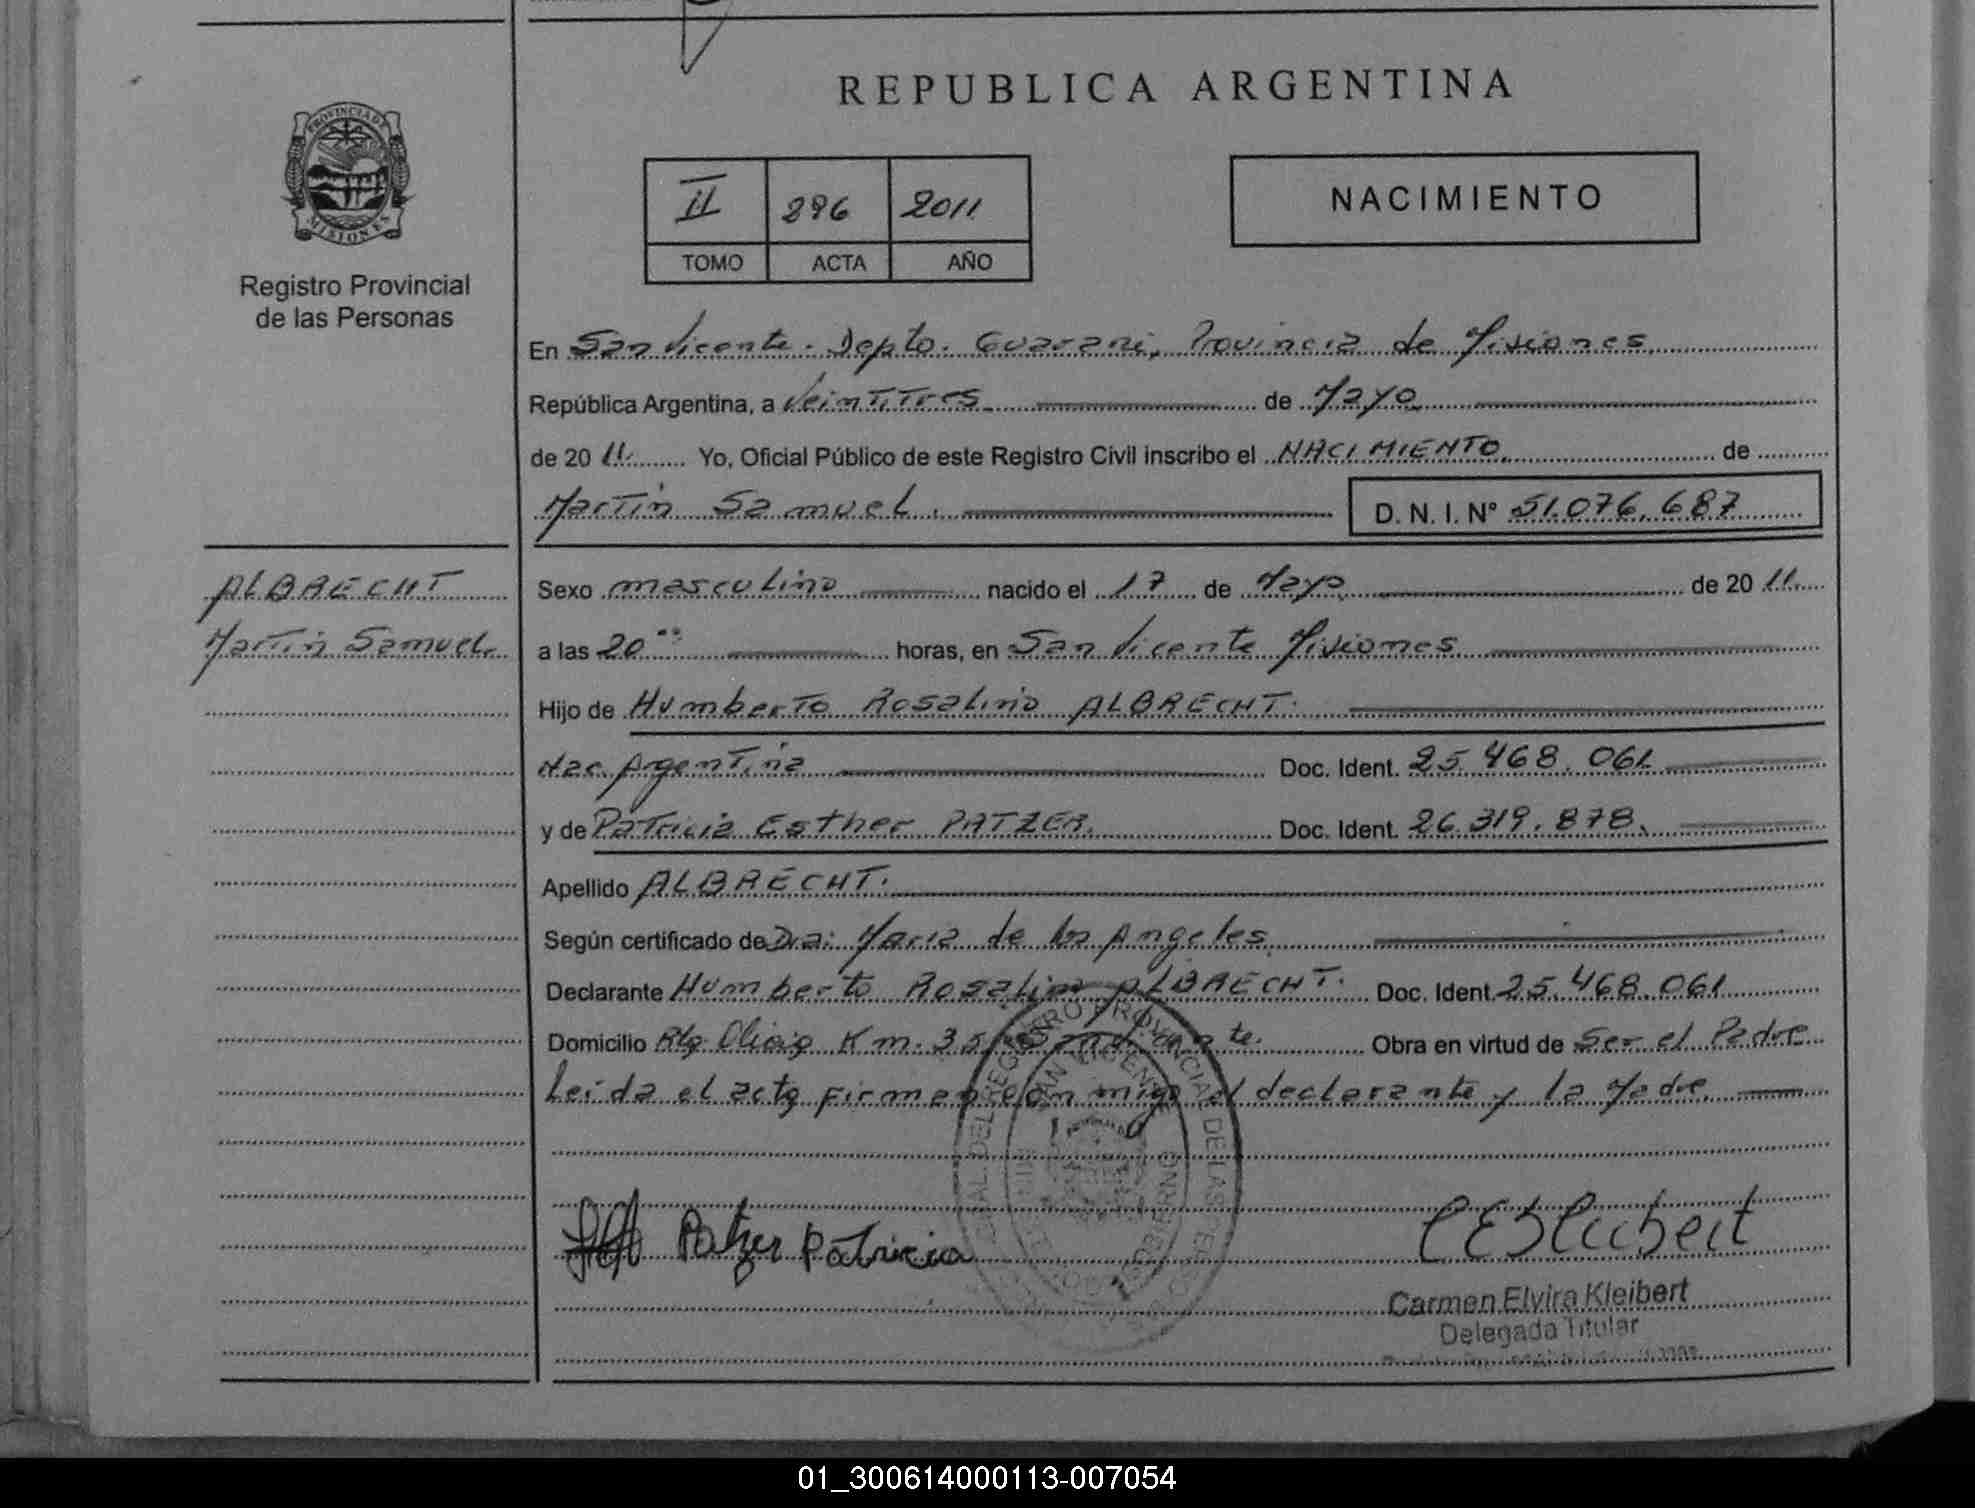 REPUBLICA ARGENTINA
PROVINCIA DE
MISIONES
Registro Provincial
de las Personas
II 296 2011
TOMO ACTA AÑO
NACIMIENTO
En San Vicente. Depto. Guarani, Provincia de Misiones
República Argentina, a Veintitres de Mayo
de 20 11. Yo, Oficial Público de este Registro Civil inscribo el NACIMIENTO de
Martin Samuel. D. N. I. N° 51.076.687
ALBRECHT
Martin Samuel.
Sexo masculino nacido el 17 de Mayo de 20 11.
a las 20 horas, en San Vicente Misiones
Hijo de Humberto Rosalino ALBRECHT.
Nac. Argentina Doc. Ident. 25.468.061
y de Patricia Esther PATZER. Doc. Ident. 26.319.878.
Apellido ALBRECHT.
Según certificado de Dra: Maria de los Angeles
Declarante Humberto Rosalino ALBRECHT. Doc. Ident. 25.468.061
Domicilio Km. 35 San Vicente. Obra en virtud de Ser el Padre
Leida el acta firman con migo el declarante y la Madre.
Patzer Patricia
Carmen Elvira Kleibert
Delegada Titular
REGISTRO PROVINCIAL DE LAS PERSONAS
SAN VICENTE
01_300614000113-007054